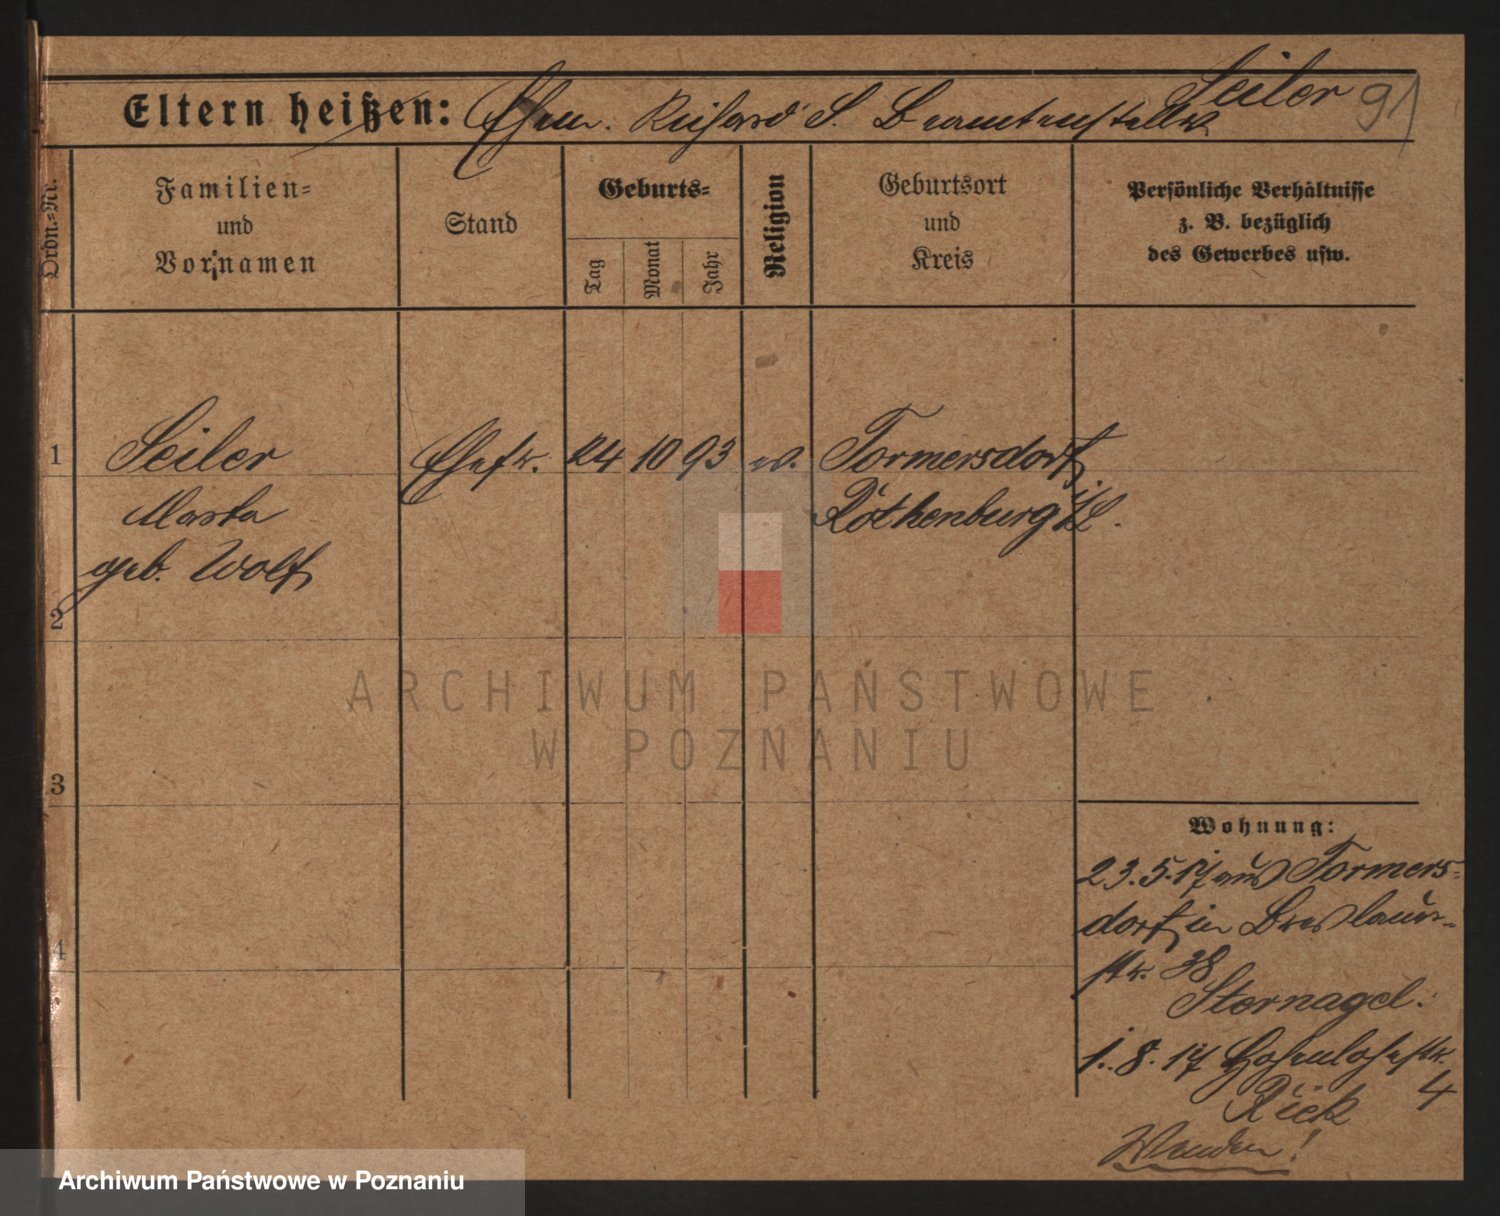 Seiler 91
Eltern heißen: Ehem. Richard S. Beamtenstellv.
Ordn.-Nr.
Familien-
und
Vornamen
Stand
Geburts-
Tag
Monat
Jahr
Religion
Geburtsort
und
Kreis
Persönliche Verhältnisse
z. B. bezüglich
des Gewerbes usw.
1 Seiler Ehefr. 24 10 93 ev. Tormersdorf
Marta Rothenburg /L.
geb. Wolf
2
3
4
ARCHIWUM PAŃSTWOWE
W POZNANIU
Wohnung:
23.5.17 aus Tormers-
dorf in Breslauer-
str. 38
Stornagel.
1.8.17 Hohenlohestr.
Rick 4
Wenden!
Archiwum Państwowe w Poznaniu